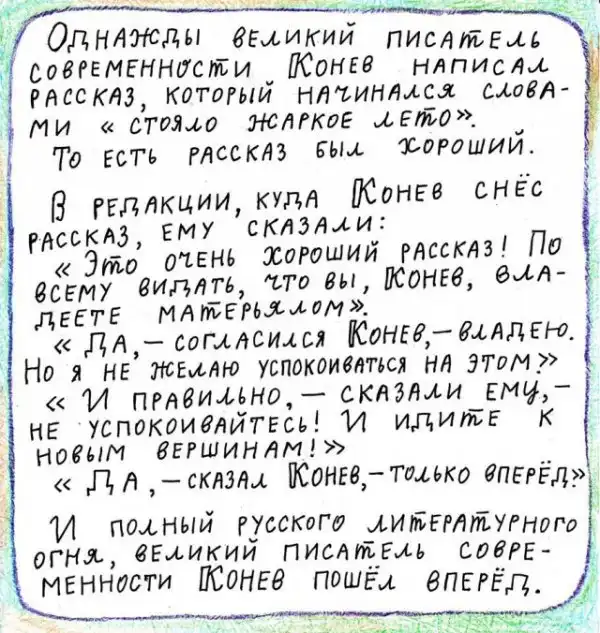 Однажды великий писатель
современности Конев написал
рассказ, который начинался слова-
ми « стояло жаркое лето».
То есть рассказ был хороший.
В редакции, куда Конев снёс
рассказ, ему сказали:
« Это очень хороший рассказ! По
всему видать, что вы, Конев, вла-
деете матерьялом».
« Да, – согласился Конев, – владею.
Но я не желаю успокоиваться на этом»
« И правильно, – сказали ему, –
не успокоивайтесь! И идите к
новым вершинам!»
« Да, – сказал Конев, – только вперёд»
И полный русского литературного
огня, великий писатель совре-
менности Конев пошёл вперёд.